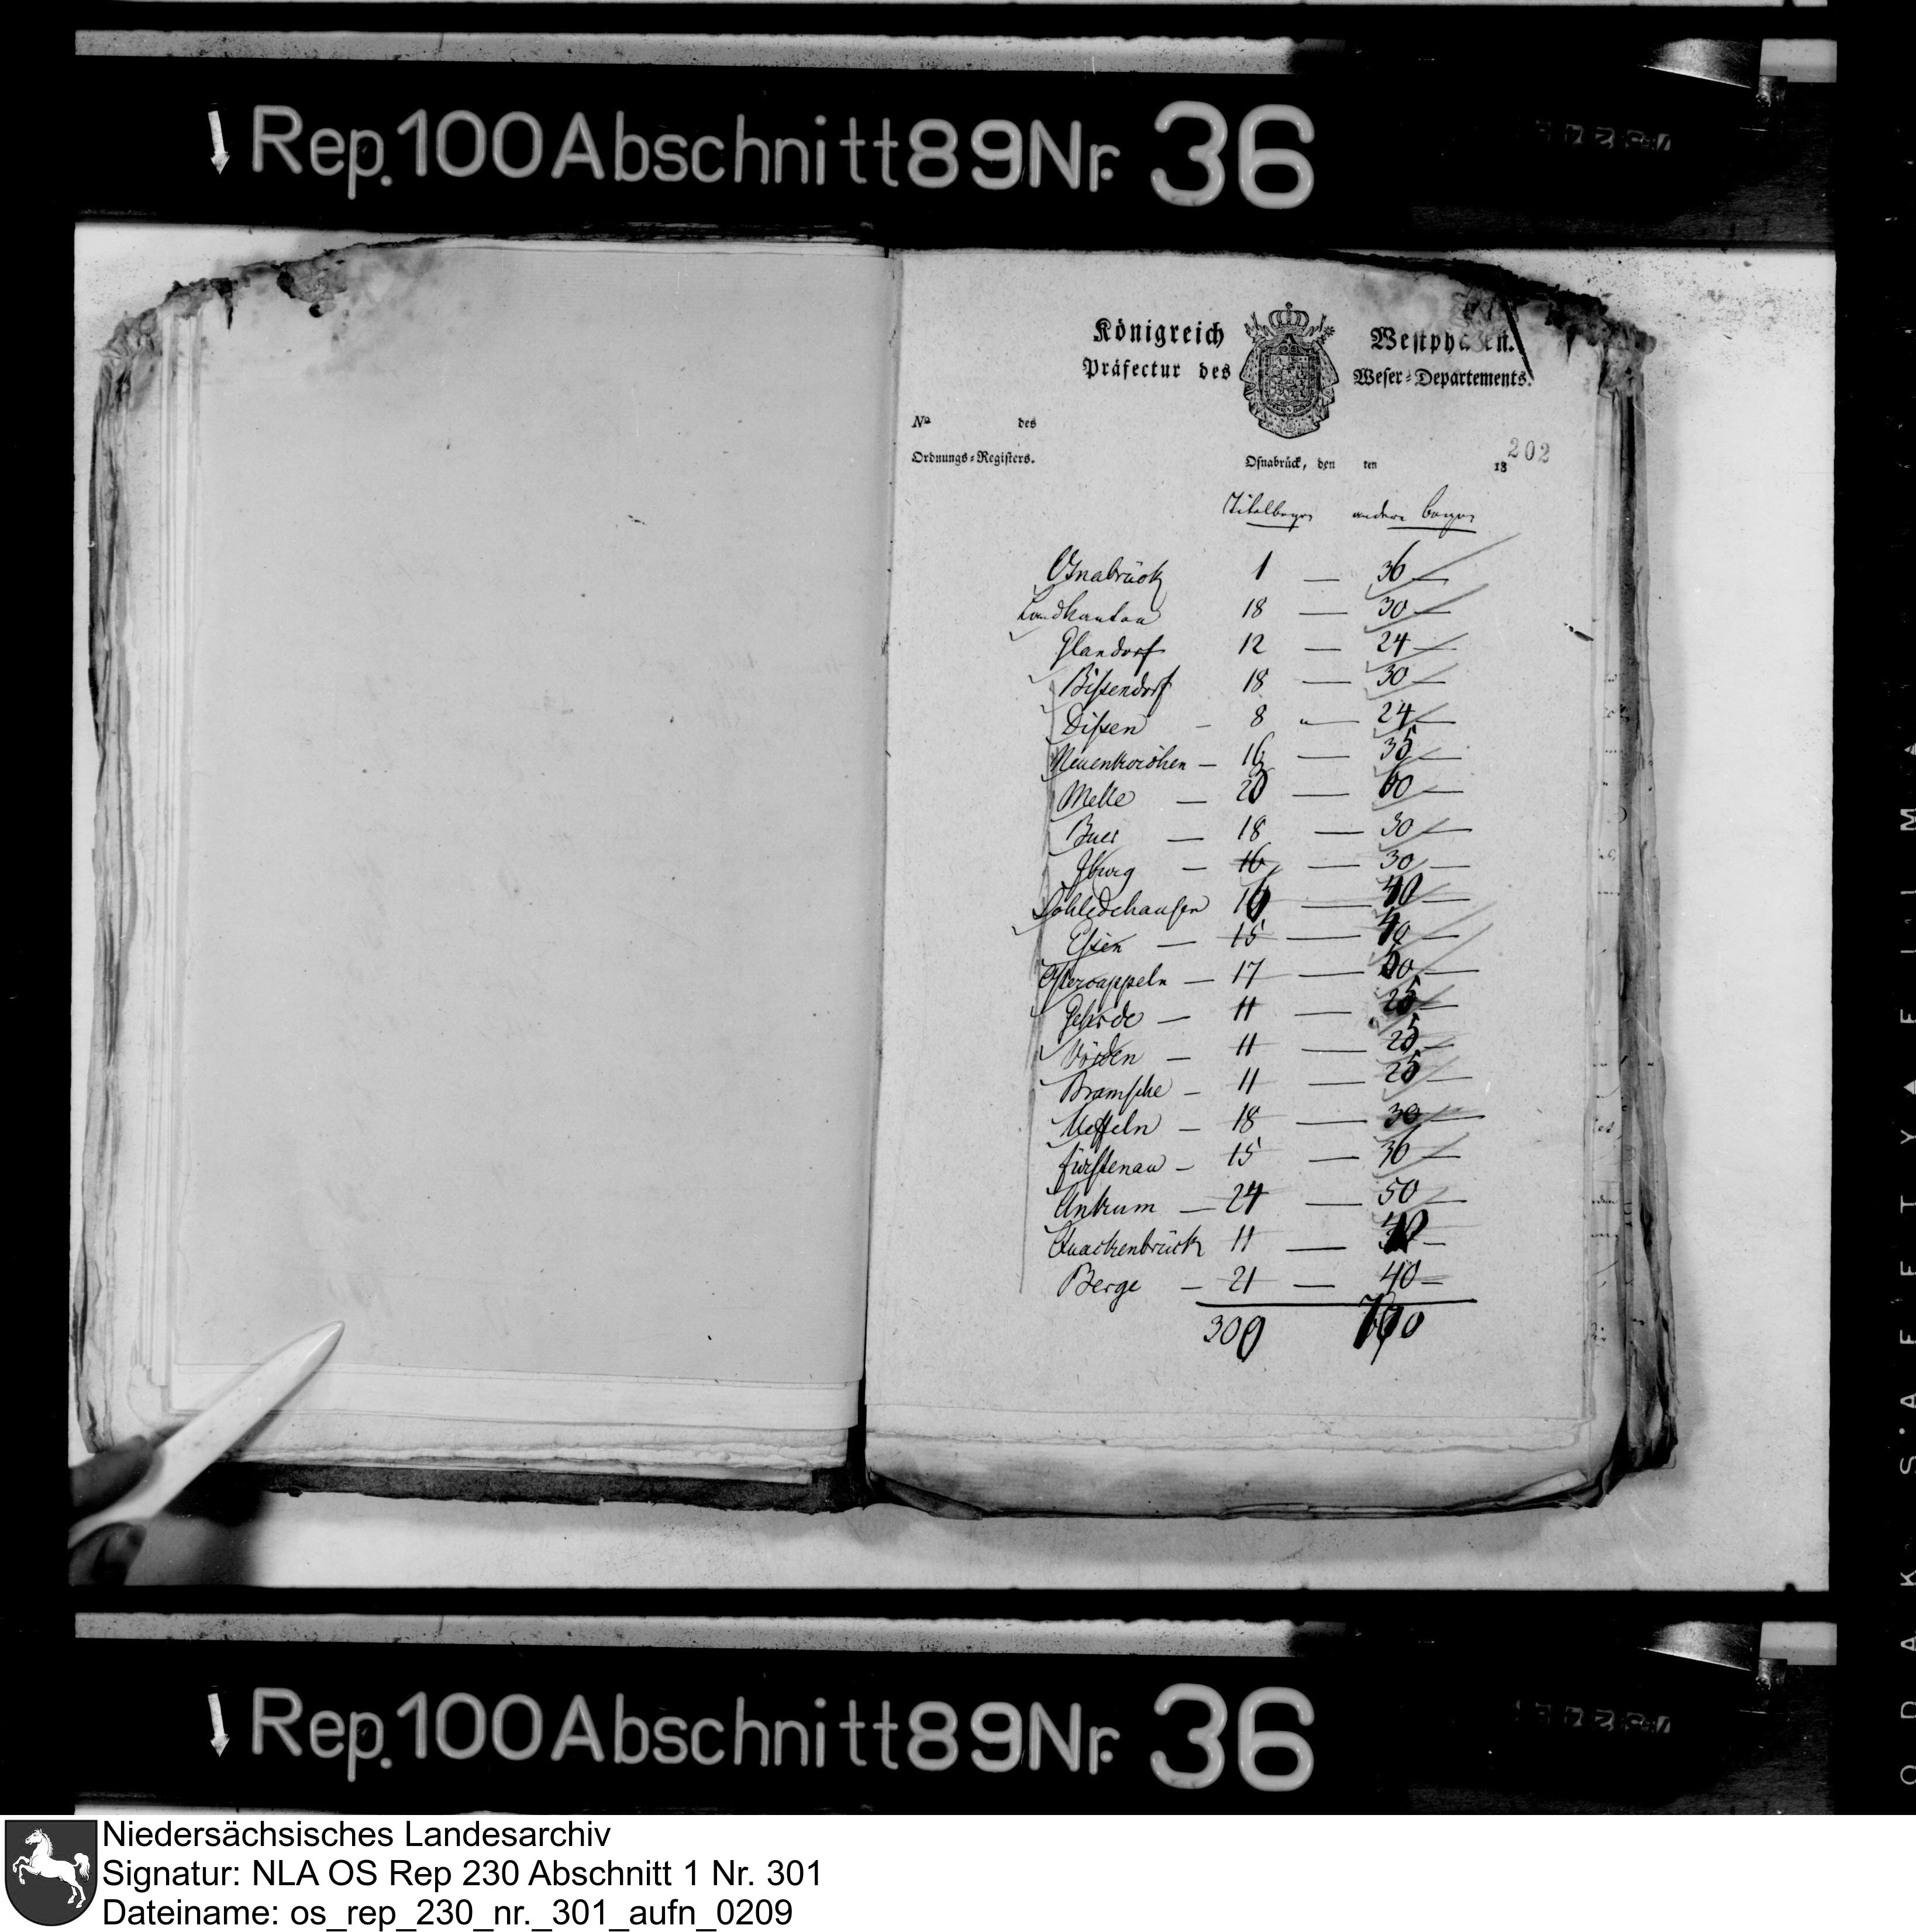 Rep. 100 Abschnitt 89 Nr. 36
Königreich Westphalen.
Präfectur des Weser-Departements.
No des
Ordnungs-Registers.
Osnabrück, den ten 18
202
Titelbogen andere bogen
Osnabrück 1 — 36 —
Landkanton 18 — 30 —
Glandorf 12 — 24 —
Bissendorf 18 — 30 —
Dissen - 8 — 24 —
Neuenkirchen — 16 — 35 —
Melle — 20 — 60 —
Buer — 18 — 30 —
Iburg — 16 — 30 —
Schledehausen 16 — 40 —
Essen — 15 — 40 —
Ostercappeln — 17 — 50 —
Gehrde — 11 — 25 —
Vörden — 11 — 25 —
Bramsche — 11 — 25 —
Ueffeln — 18 — 30 —
Fürstenau — 15 — 36 —
Ankum — 24 — 50 —
Quackenbrück 11 — —
Berge — 21 — 40 —
300
Rep. 100 Abschnitt 89 Nr. 36
Niedersächsisches Landesarchiv
Signatur: NLA OS Rep 230 Abschnitt 1 Nr. 301
Dateiname: os_rep_230_nr._301_aufn_0209